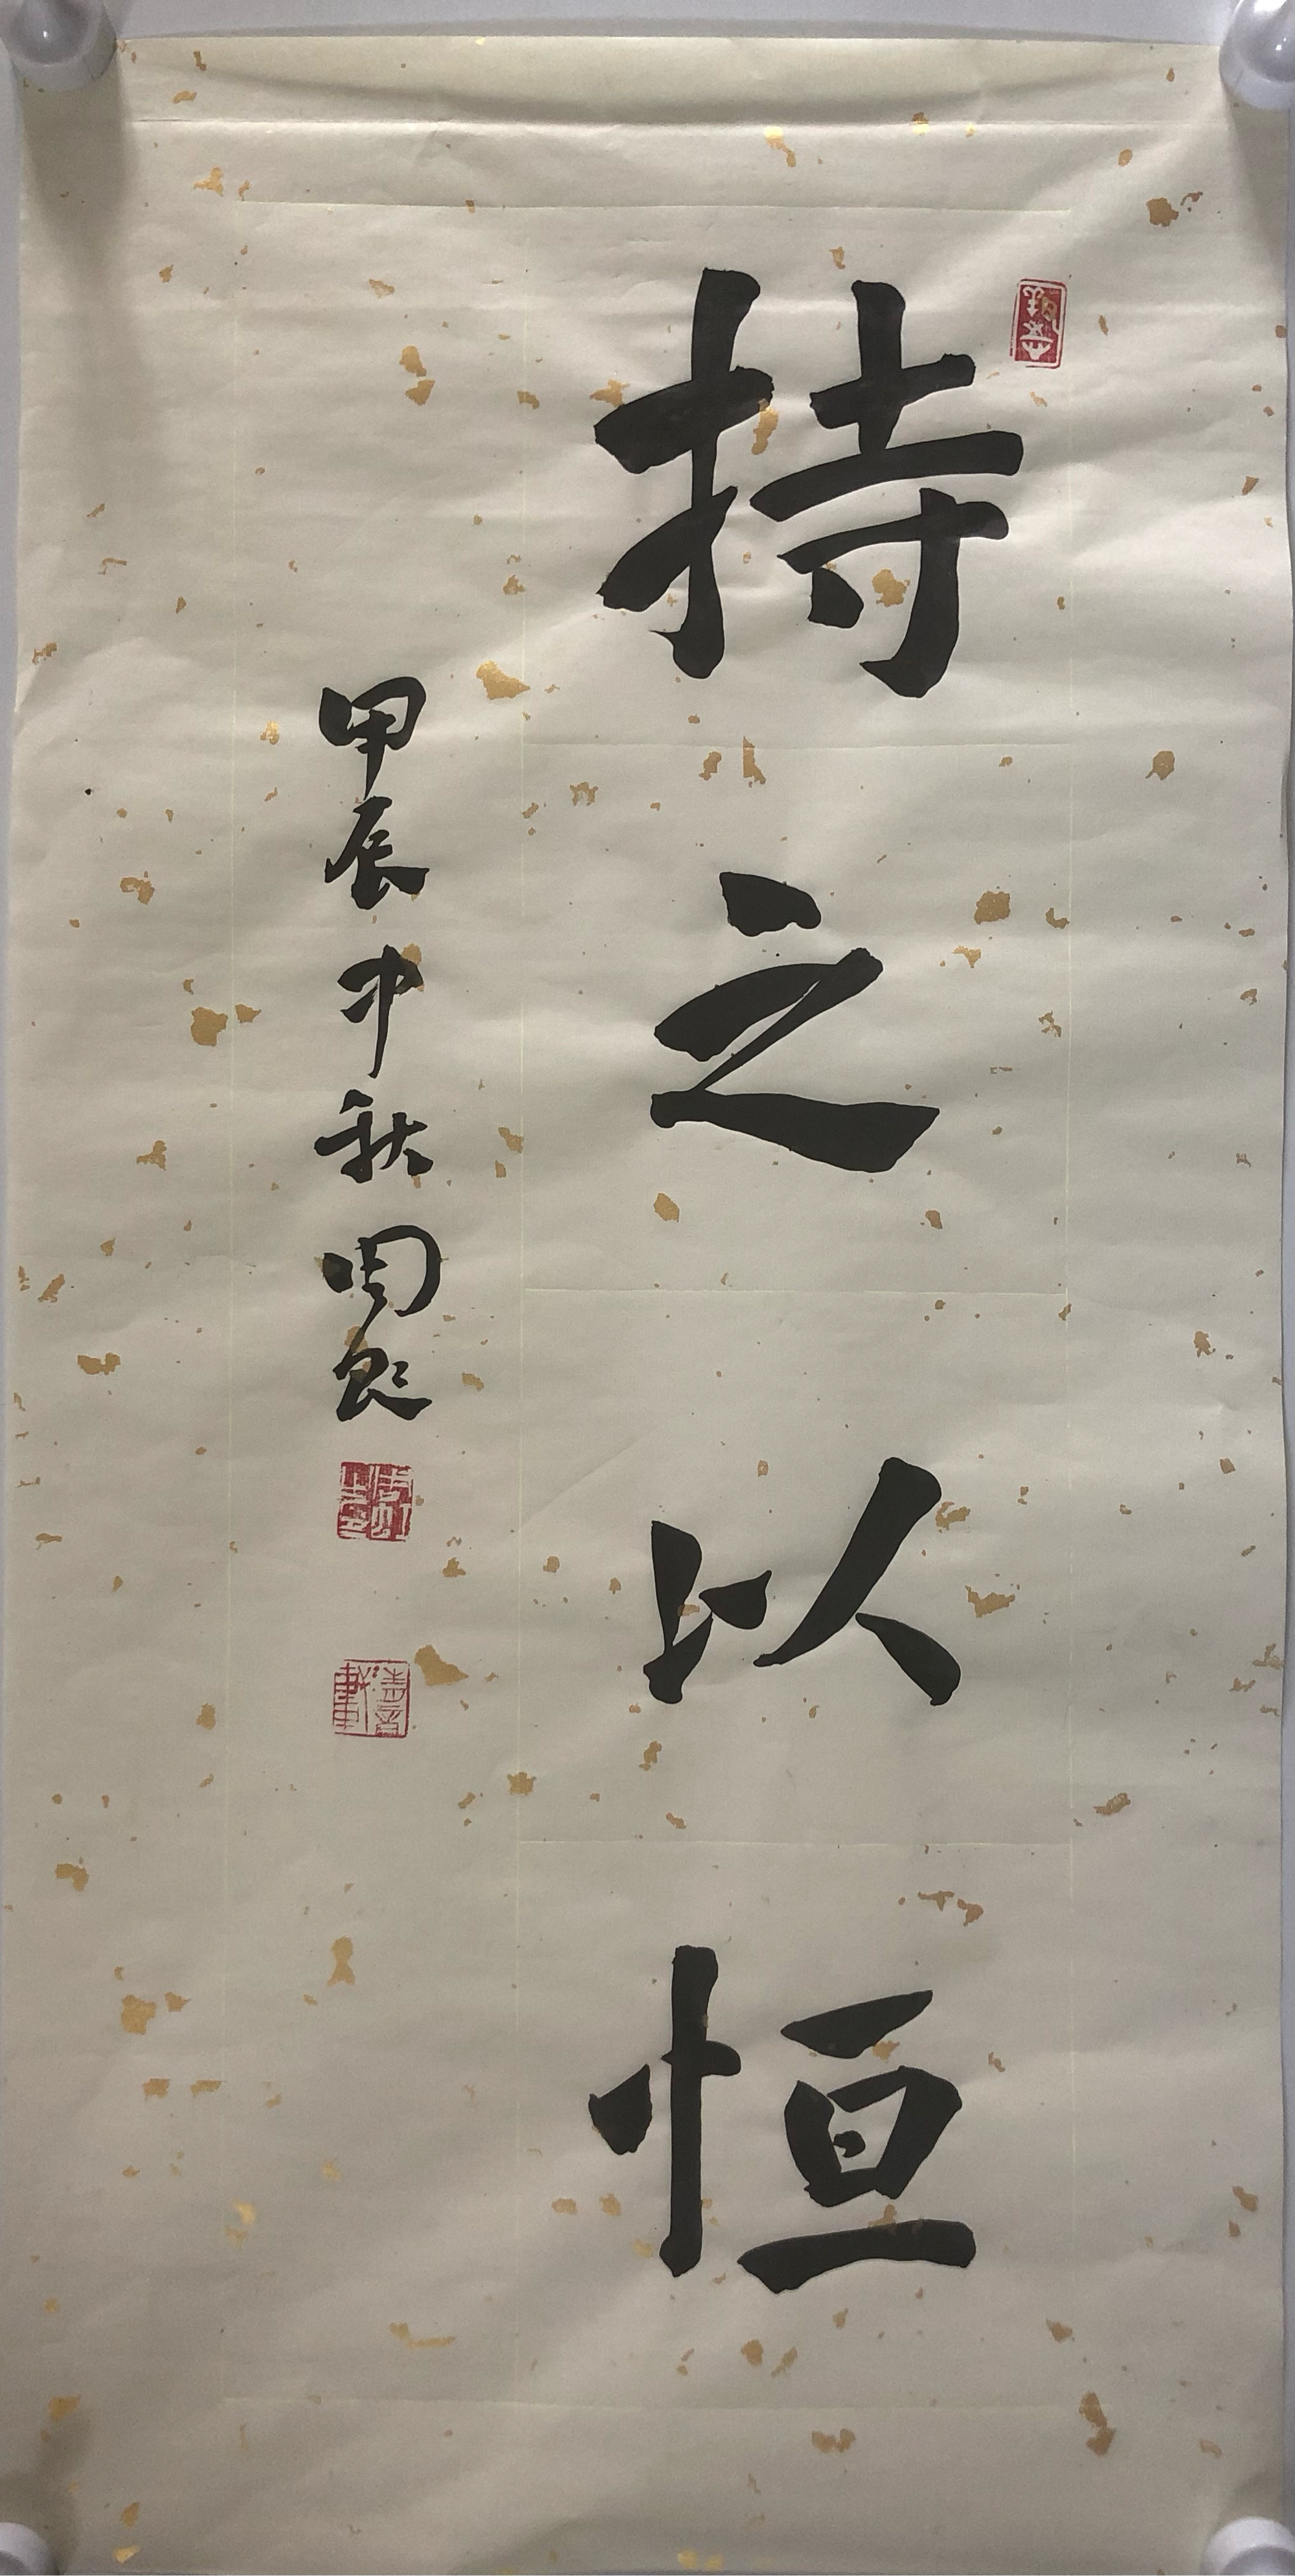 持之以恒
甲辰中秋周